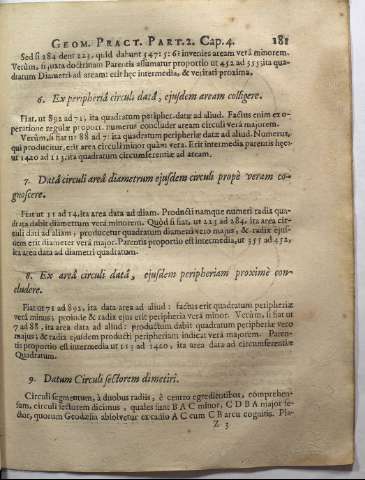 GEOM. PRACT. PART. 2. Cap. 4. 181
Sed si 284 dent 223, quid dabunt 5472 5: 6? invenies aream verâ minorem.
Verùm, si juxta doctrinam Parentis assumatur proportio ut 452 ad 355 ita qua-
dratum Diametri ad aream: erit hęc intermedia, & veritati proxima.
6. Ex peripheriâ circuli datâ, ejusdem aream colligere.
Fiat, ut 892 ad 71, ita quadratum peripher. datæ ad aliud. Factus enim ex o-
peratione regulæ proport. numerus concludet aream circuli verâ majorem.
Verùm, si fiat ut 88 ad 7: ita quadratum peripheriæ datæ ad aliud. Numerus,
qui producitur, erit area circuli minor quàm vera. Erit intermedia parentis hęc:
ut 1420 ad 113, ita quadratum circumferentiæ ad aream.
7. Datâ circuli areâ diametrum ejusdem circuli propè veram co-
gnoscere.
Fiat ut 11 ad 14, ita area data ad aliam. Producti namque numeri radix qua-
drata dabit diametrum verâ minorem. Quòd si fiat, ut 223 ad 284, ita area cir-
culi dati ad aliam; producetur quadratum diametri vero majus, & radix ejus-
dem erit diameter verâ major. Parentis proportio est intermedia, ut 355 ad 452,
ita area data ad diametri quadratum.
8. Ex areâ circuli datâ, ejusdem peripheriam proximè con-
cludere.
Fiat ut 71 ad 892, ita data area ad aliud: factus erit quadratum peripheriæ
verâ minus; proinde & radix ejus erit peripheria verâ minor. Verùm, si fiat ut
7 ad 88, ita area data ad aliud: productum dabit quadratum peripheriæ vero
majus; & radix ejusdem producti peripheriam indicat verâ majorem. Paren-
tis proportio est intermedia ut 113 ad 1420, ita area data ad circumferentiæ
Quadratum.
9. Datum Circuli sectorem dimetiri.
Circuli segmentum, à duobus radiis, è centro egredientibus, comprehen-
sum, circuli sectorem dicimus, quales sunt BAC minor, CDBA major se-
ctor, quorum Geodæsia absolvetur ex radio AC cum CB arcu cognitis. Pla-
Z 3